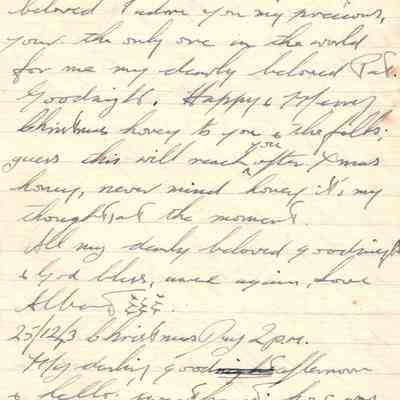 beloved I adore you my precious,
your the only one in the world
for me my dearly beloved Pat.
Goodnight. Happy & Merry
Christmas honey to you & the folks,
guess this will reach you after Xmas
honey, never mind honey it's my
thoughts at the moment.
All my dearly beloved goodnight
& God bless, once again, love
Albert
25/12/43 Christmas Day 2pm.
My darling good afternoon
& hello,